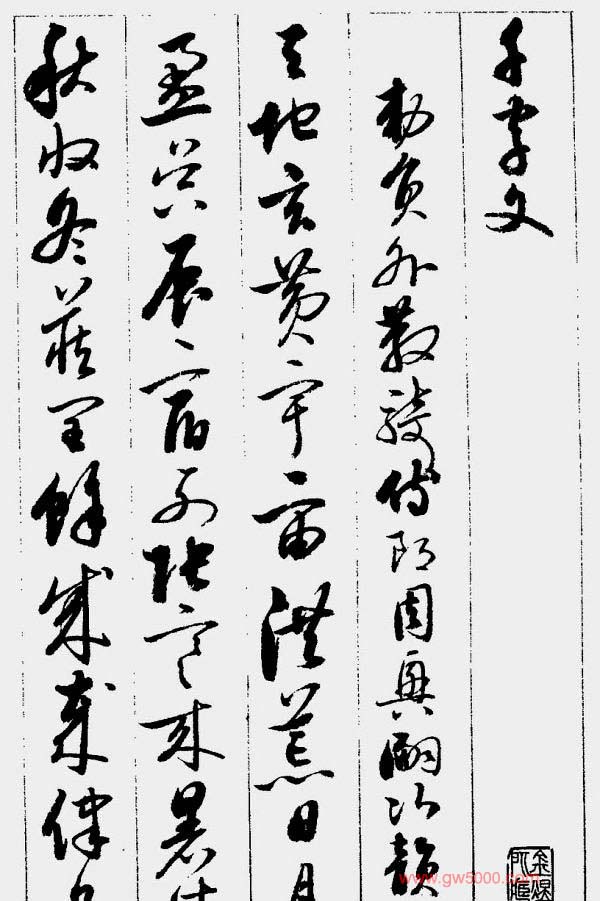 千字文
勅員外散騎侍郎周興嗣次韻
天地玄黃宇宙洪荒日月
盈昃辰宿列張寒來暑往
秋收冬藏閏餘成歲律呂
www.gw5000.com